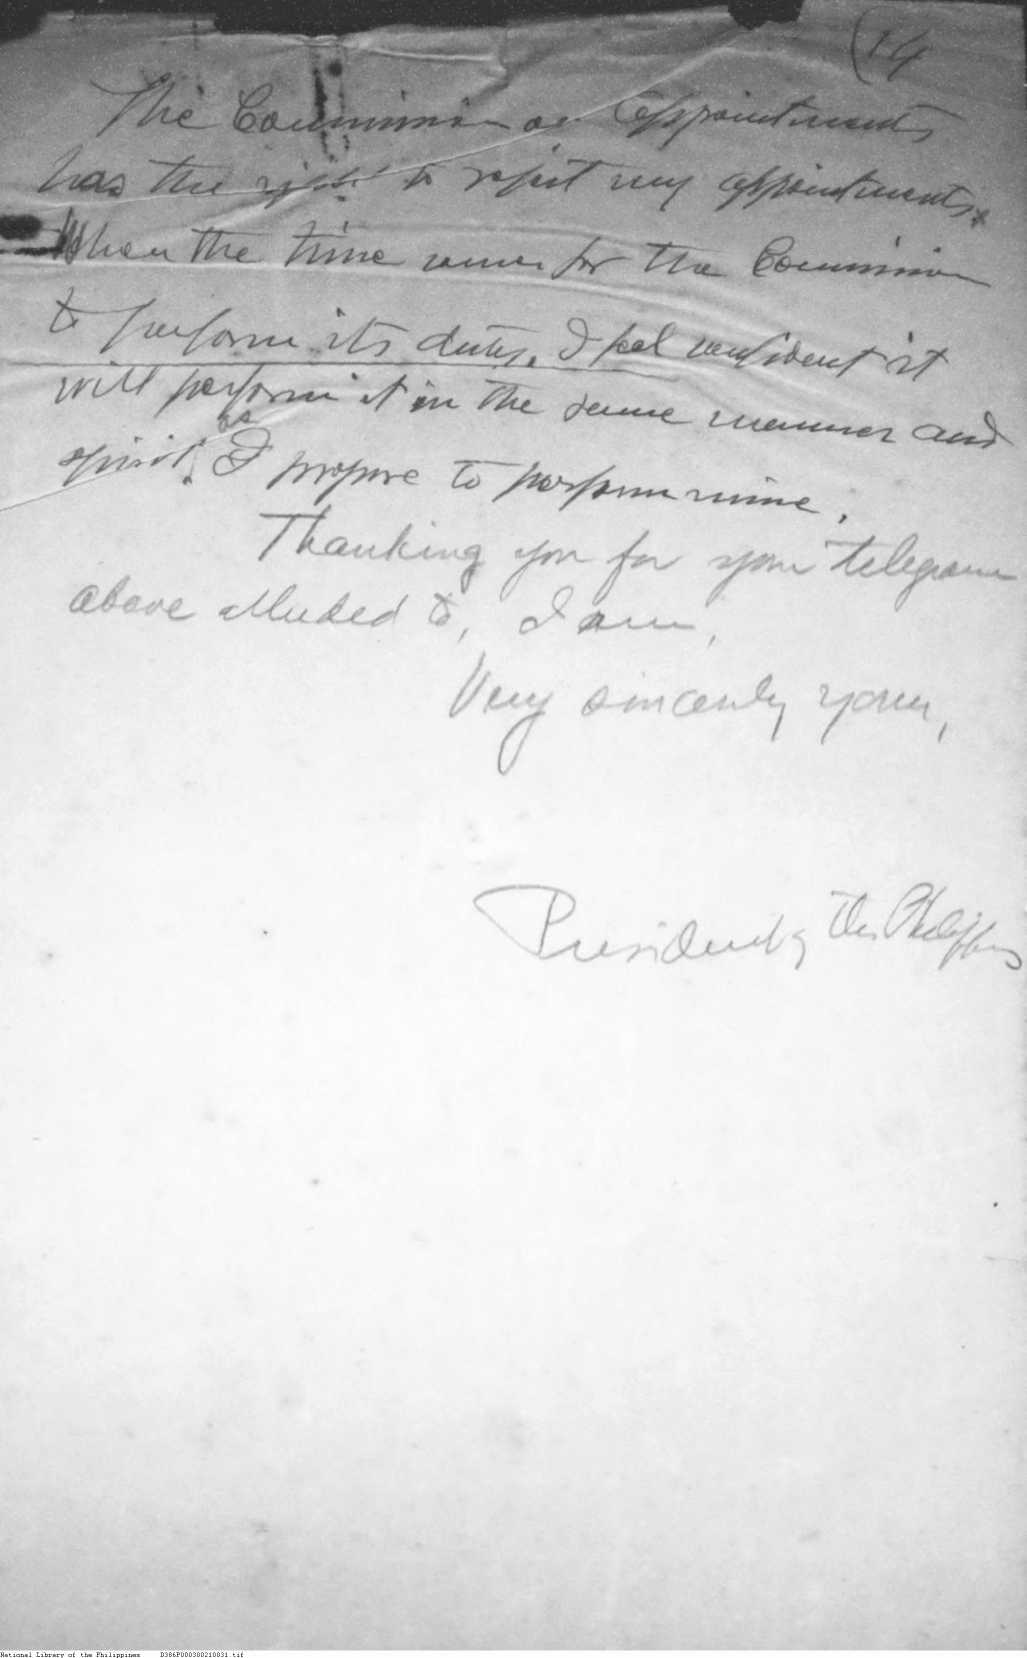 (14
The Commission on Appointments
has the right to reject my appointments.
When the time comes for the Commission
to perform its duty, I feel confident it
will perform it in the same manner and
spirit as I propose to perform mine.
Thanking you for your telegram
above alluded to, I am,
Very sincerely yours,
President of the Philippines
National Library of the Philippines D386P000300210031.tif